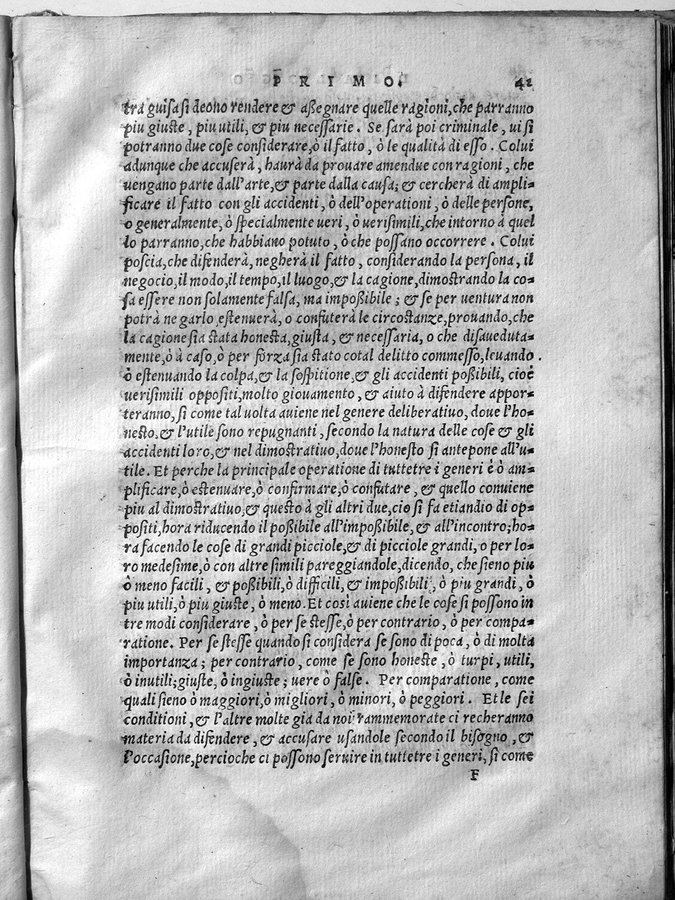 PRIMO. 41
tra guisa si deono rendere & aſſegnare quelle ragioni, che parranno
piu giuste, piu utili, & piu neceſſarie. Se ſarà poi criminale, ui ſi
potranno due coſe conſiderare, ò il fatto, ò le qualità di eſſo. Colui
adunque che accuſerà, haurà da prouare amendue con ragioni, che
uengano parte dall'arte, & parte dalla cauſa; & cercherà di ampli=
ficare il fatto con gli accidenti, ò dell'operationi, ò delle perſone,
o generalmente, ò ſpecialmente ueri, ò ueriſimili, che intorno à quel
lo parranno, che habbiano potuto, ò che poſſano occorrere. Colui
poſcia, che difenderà, negherà il fatto, conſiderando la perſona, il
negocio, il modo, il tempo, il luogo, & la cagione, dimoſtrando la co=
ſa eſſere non ſolamente falſa, ma impoßibile; & ſe per uentura non
potrà negarlo eſtenuerà, o confuterà le circoſtanze, prouando, che
la cagione ſia ſtata honeſta, giuſta, & neceſſaria, o che diſaueduta=
mente, ò à caſo, ò per forza ſia ſtato cotal delitto commeſſo, leuando
ò eſtenuando la colpa, & la ſoſpitione, & gli accidenti poßibili, cioè
ueriſimili oppoſiti, molto giouamento, & aiuto à difendere appor=
teranno, ſi come tal uolta auiene nel genere deliberatiuo, doue l'ho=
neſto, & l'utile ſono repugnanti, ſecondo la natura delle coſe & gli
accidenti loro, & nel dimoſtratiuo, doue l'honeſto ſi antepone all'u=
tile. Et perche la principale operatione di tuttetre i generi è ò am=
plificare, ò eſtenuare, ò confirmare, ò confutare, & quello conuiene
piu al dimoſtratiuo, & queſto à gli altri due, cio ſi fa etiandio di op=
poſiti, hora riducendo il poßibile all'impoßibile, & all'incontro; ho=
ra facendo le coſe di grandi picciole, & di picciole grandi, o per lo=
ro medeſime, ò con altre ſimili pareggiandole, dicendo, che ſieno piu
ò meno facili, & poßibili, ò difficili, & impoßibili, ò piu grandi, ò
piu utili, ò piu giuſte, ò meno. Et coſì auiene che le coſe ſi poſſono in
tre modi conſiderare, ò per ſe ſteſſe, ò per contrario, ò per compa=
ratione. Per ſe ſteſſe quando ſi conſidera ſe ſono di poca, ò di molta
importanza; per contrario, come ſe ſono honeſte, ò turpi, utili,
ò inutili; giuſte, ò ingiuſte; uere ò falſe. Per comparatione, come
quali ſieno ò maggiori, ò migliori, ò minori, ò peggiori. Et le ſei
conditioni, & l'altre molte gia da noi rammemorate ci recheranno
materia da difendere, & accuſare uſandole ſecondo il biſogno, &
l'occaſione, percioche ci poſſono ſeruire in tuttetre i generi, ſi come
F